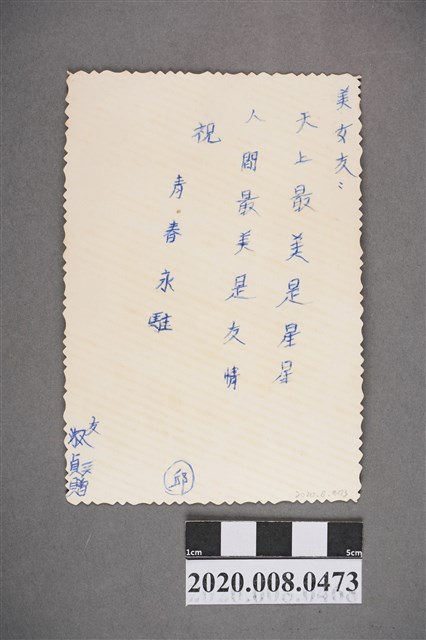 美女友：
天上最美是星星
人間最美是友情
祝
青春永駐
友
淑貞贈
邱
1cm
5cm
2020.008.0473